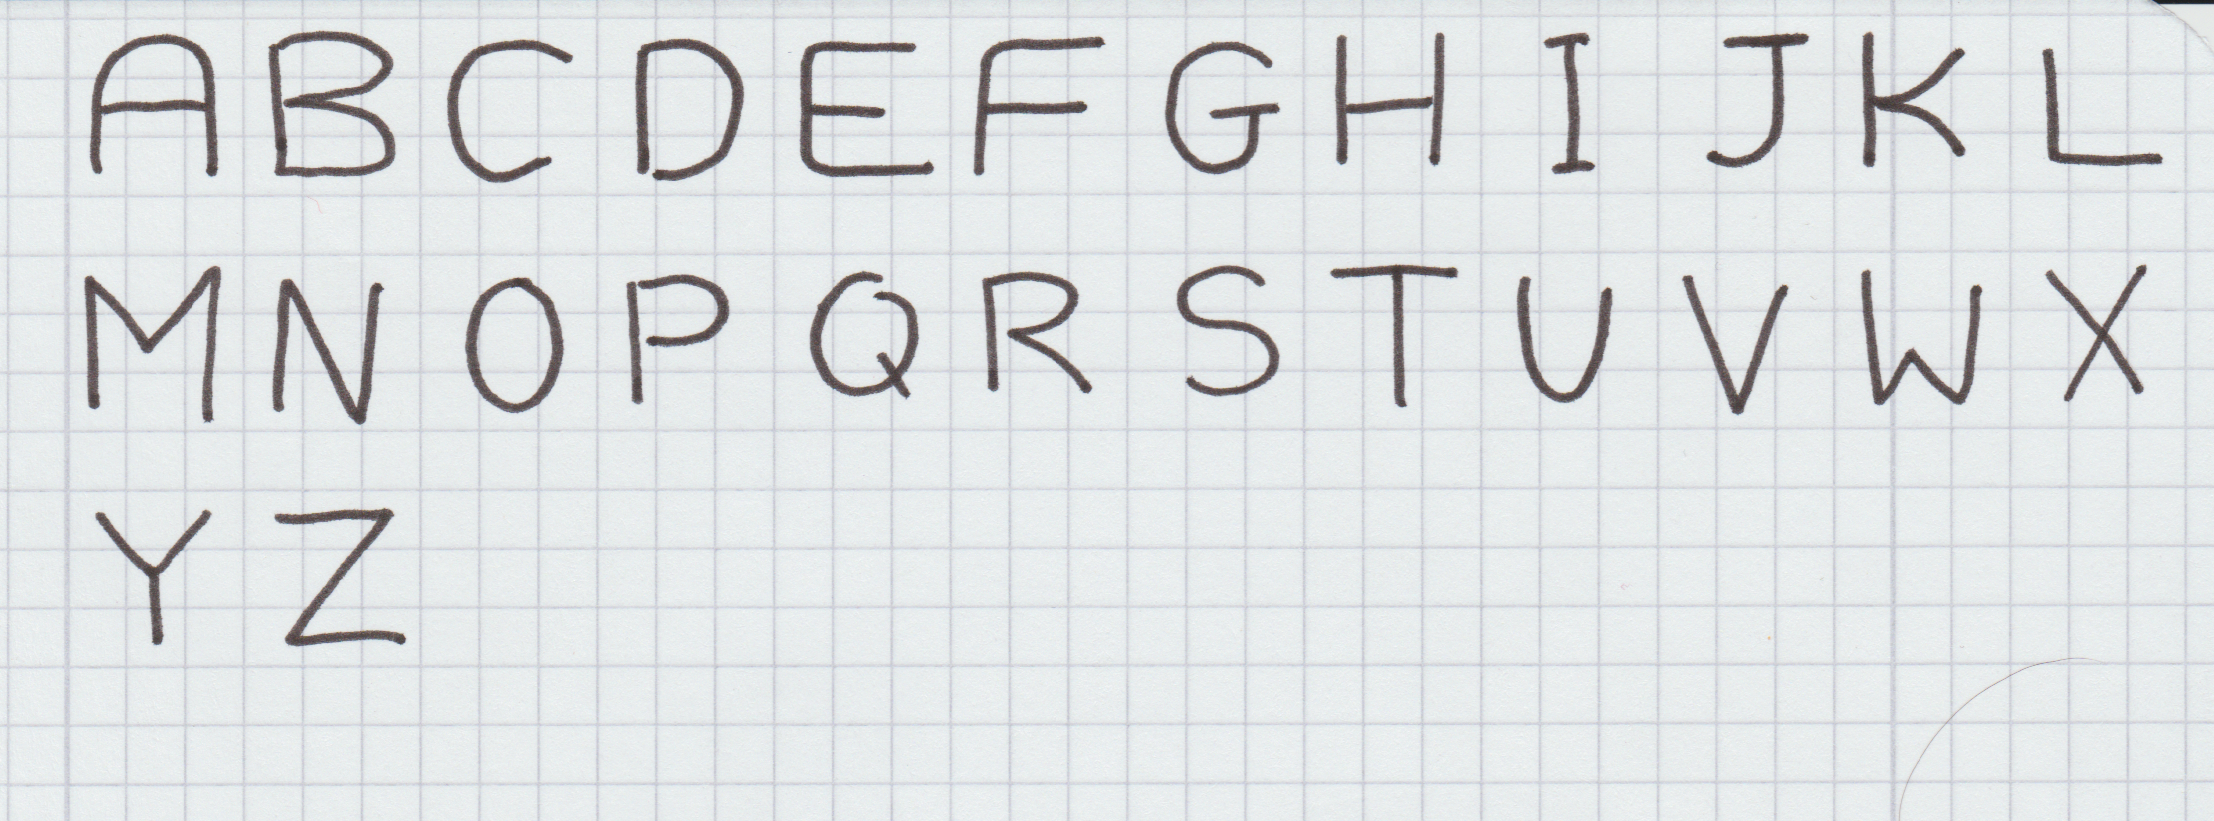 A B C D E F G H I J K L
M N O P Q R S T U V W X
Y Z